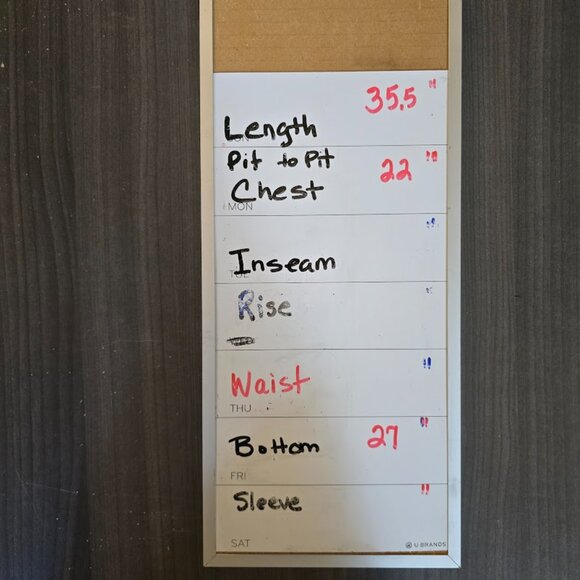 35.5 "
Length
Pit to Pit
22 "
Chest
MON
"
Inseam
Rise
"
Waist
"
THU
Bottom
27 "
FRI
Sleeve
"
SAT
U BRANDS